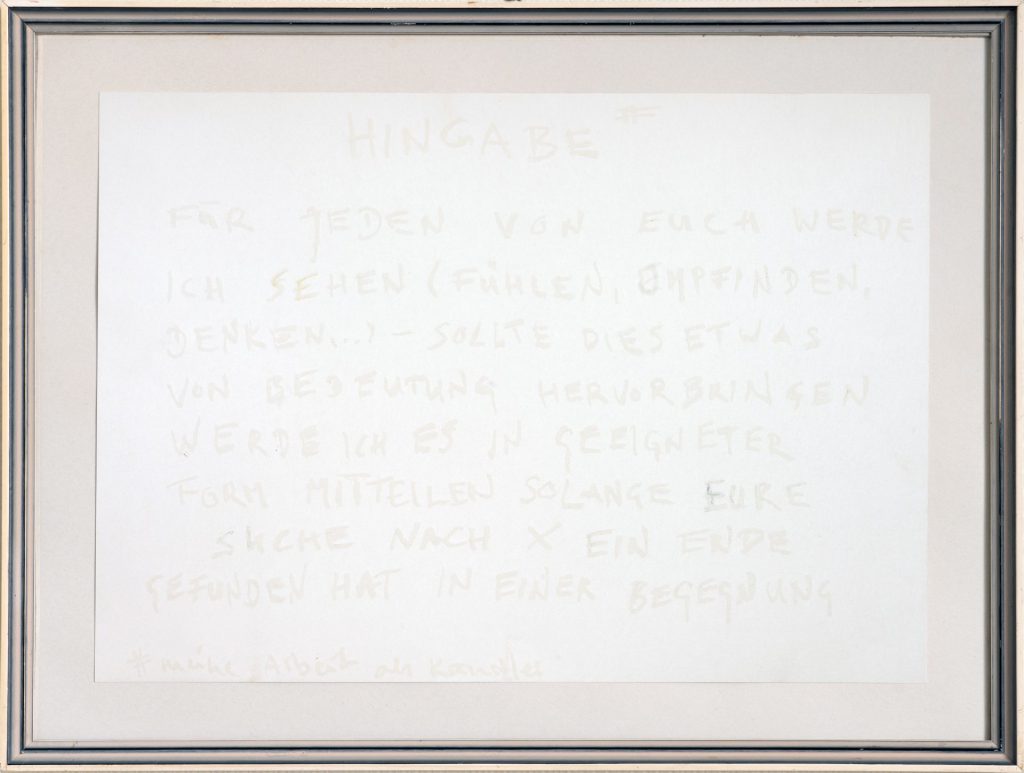 HINGABE #
FÜR JEDEN VON EUCH WERDE
ICH SEHEN (FÜHLEN, EMPFINDEN,
DENKEN,...) – SOLLTE DIES ETWAS
VON BEDEUTUNG HERVORBRINGEN
WERDE ICH ES IN GEEIGNETER
FORM MITTEILEN SOLANGE EURE
SUCHE NACH X EIN ENDE
GEFUNDEN HAT IN EINER BEGEGNUNG
# meine Arbeit als Künstler